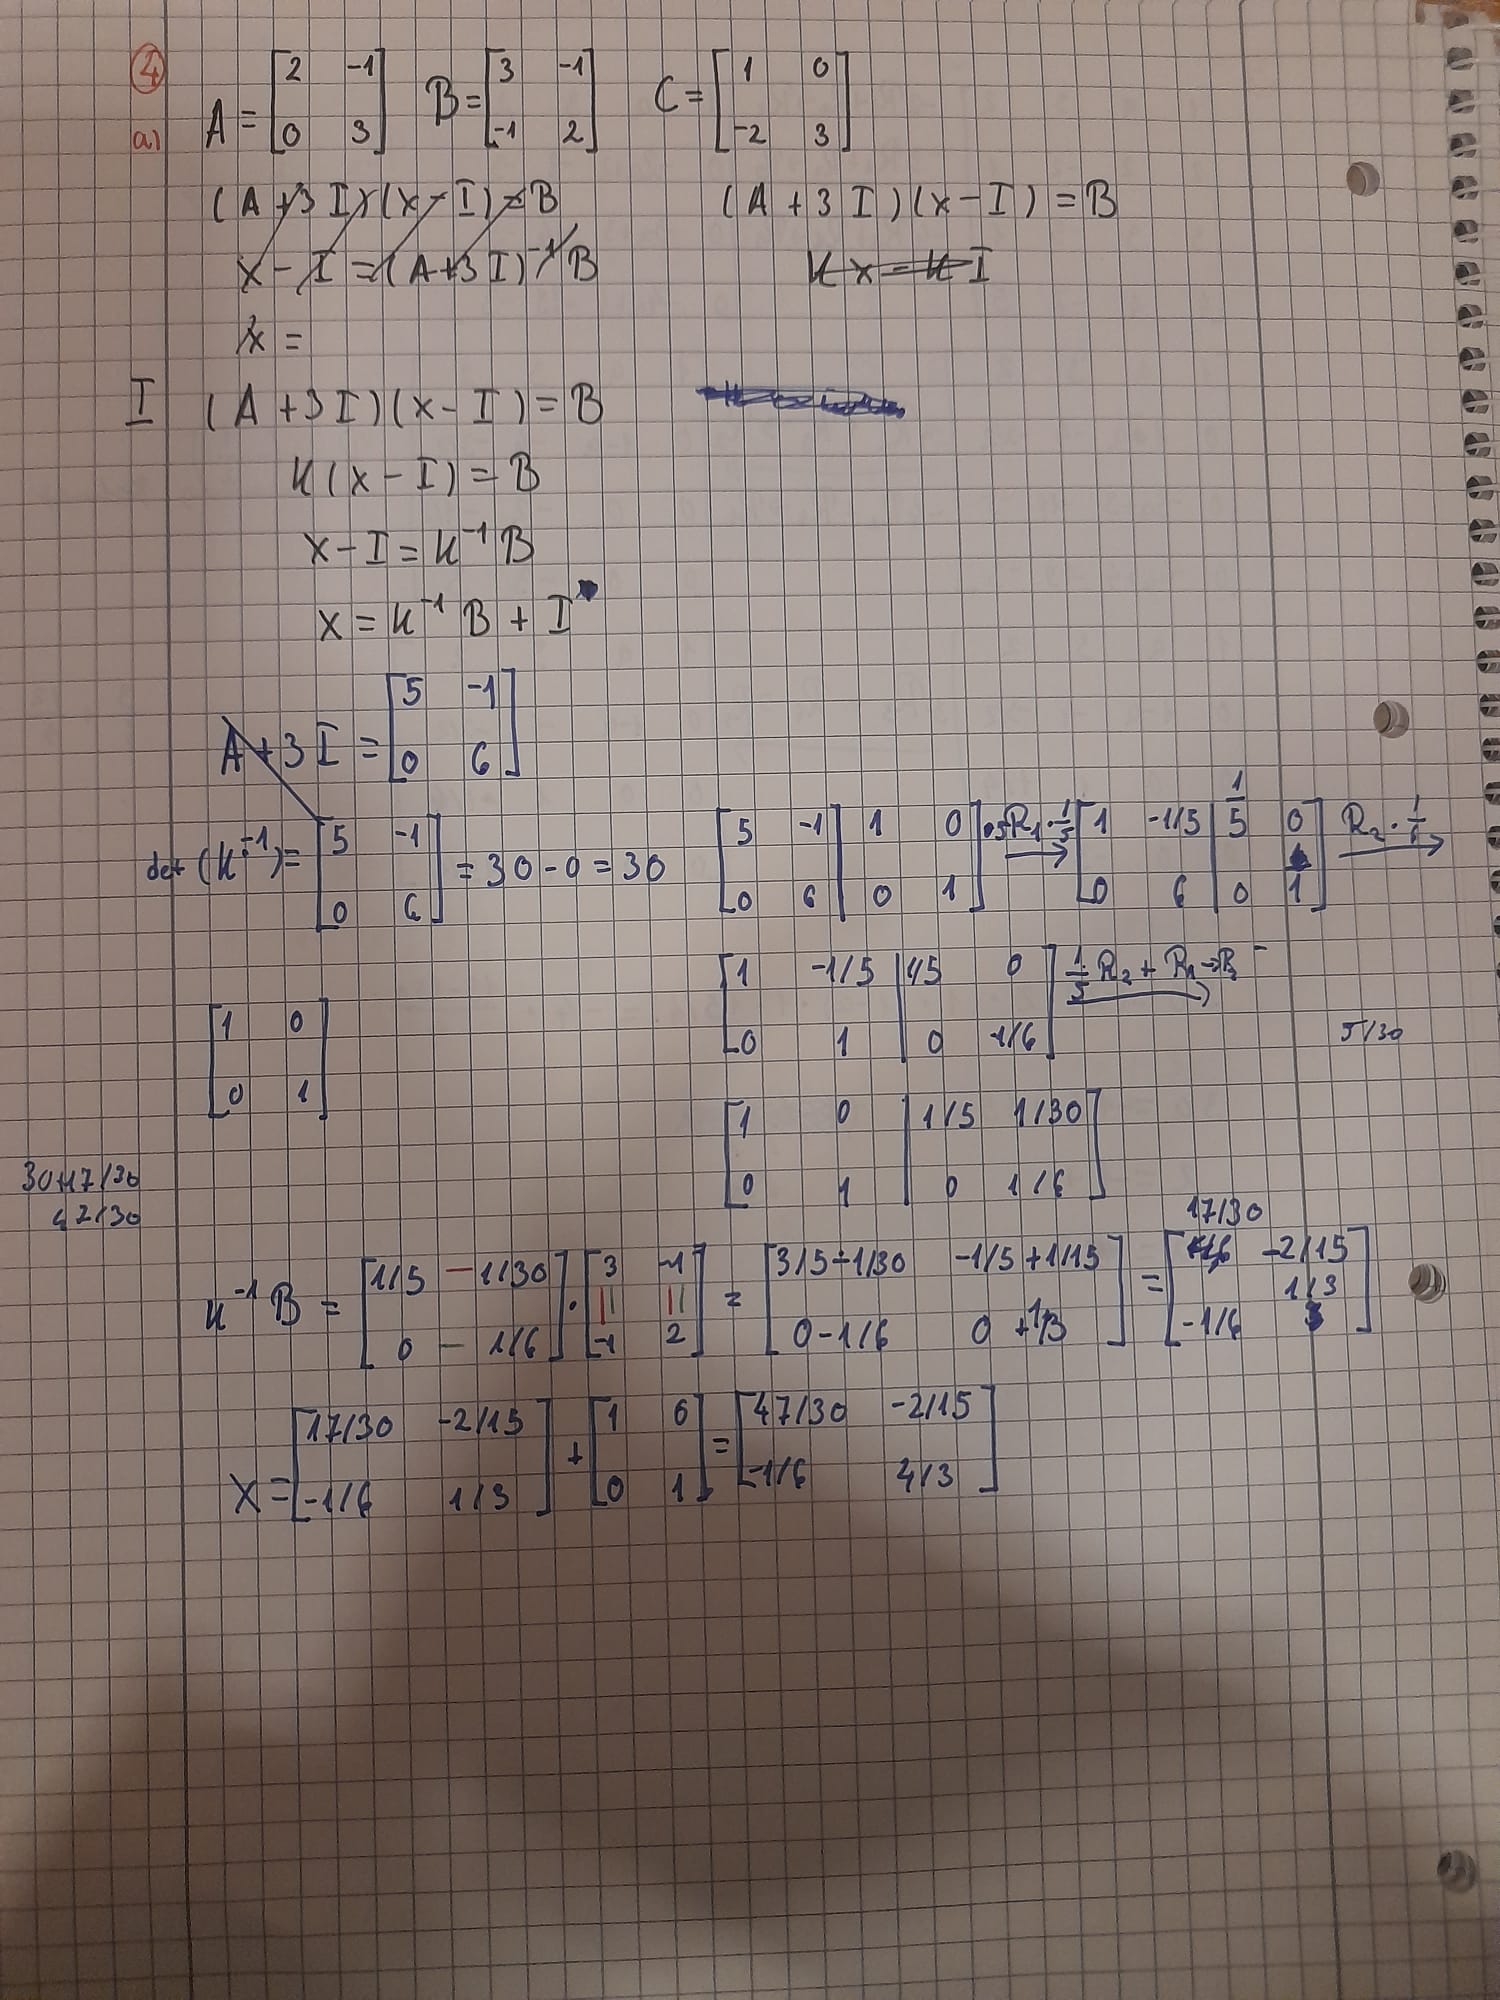 4
a) A = [2 -1; 0 3] B = [3 -1; -1 2] C = [1 0; -2 3]
(A + 3 I) (x - I) = B (A + 3 I) (x - I) = B
x - I = (A + 3 I)⁻¹ B K x - K I
x =
I (A + 3 I) (x - I) = B
K (x - I) = B
x - I = K⁻¹ B
x = K⁻¹ B + I
A + 3 I = [5 -1; 0 6]
det (K⁻¹) = [5 -1; 0 6] = 30 - 0 = 30
[5 -1 | 1 0; 0 6 | 0 1] R₁ · 1/5 → [1 -1/5 | 1/5 0; 0 6 | 0 1] R₂ · 1/6 →
[1 -1/5 | 1/5 0; 0 1 | 0 1/6] 1/5 R₂ + R₁ →
5/30
[1 0; 0 1]
[1 0 | 1/5 1/30; 0 1 | 0 1/6]
30+17/30
47/30
17/30
K⁻¹ B = [1/5 - 1/30; 0 - 1/6] · [3 -1; -1 2] = [3/5 - 1/30 -1/5 + 1/15; 0 - 1/6 0 + 1/3] = [17/30 -2/15; -1/6 1/3]
X = [17/30 -2/15; -1/6 1/3] + [1 0; 0 1] = [47/30 -2/15; -1/6 4/3]